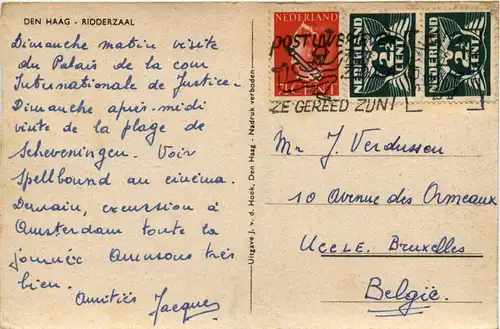 DEN HAAG - RIDDERZAAL
Dimanche matin visite
du Palais de la cour
Internationale de Justice -
Dimanche après-midi
visite de la plage de
Scheveningen. Voir
Spellbound au cinéma.
Demain, excursion à
Amsterdam toute la
journée Amusons très
bien.
Amitiés Jacques
Uitgave J. v. d. Hoek, Den Haag - Nadruk verboden
NEDERLAND
NEDERLAND
2½
CENT
NEDERLAND
2½
CENT
POSTUWE
ZE GEREED ZIJN!
Mr J. Verdussen
10 Avenue des Ormeaux
UCCLE. Bruxelles
België.